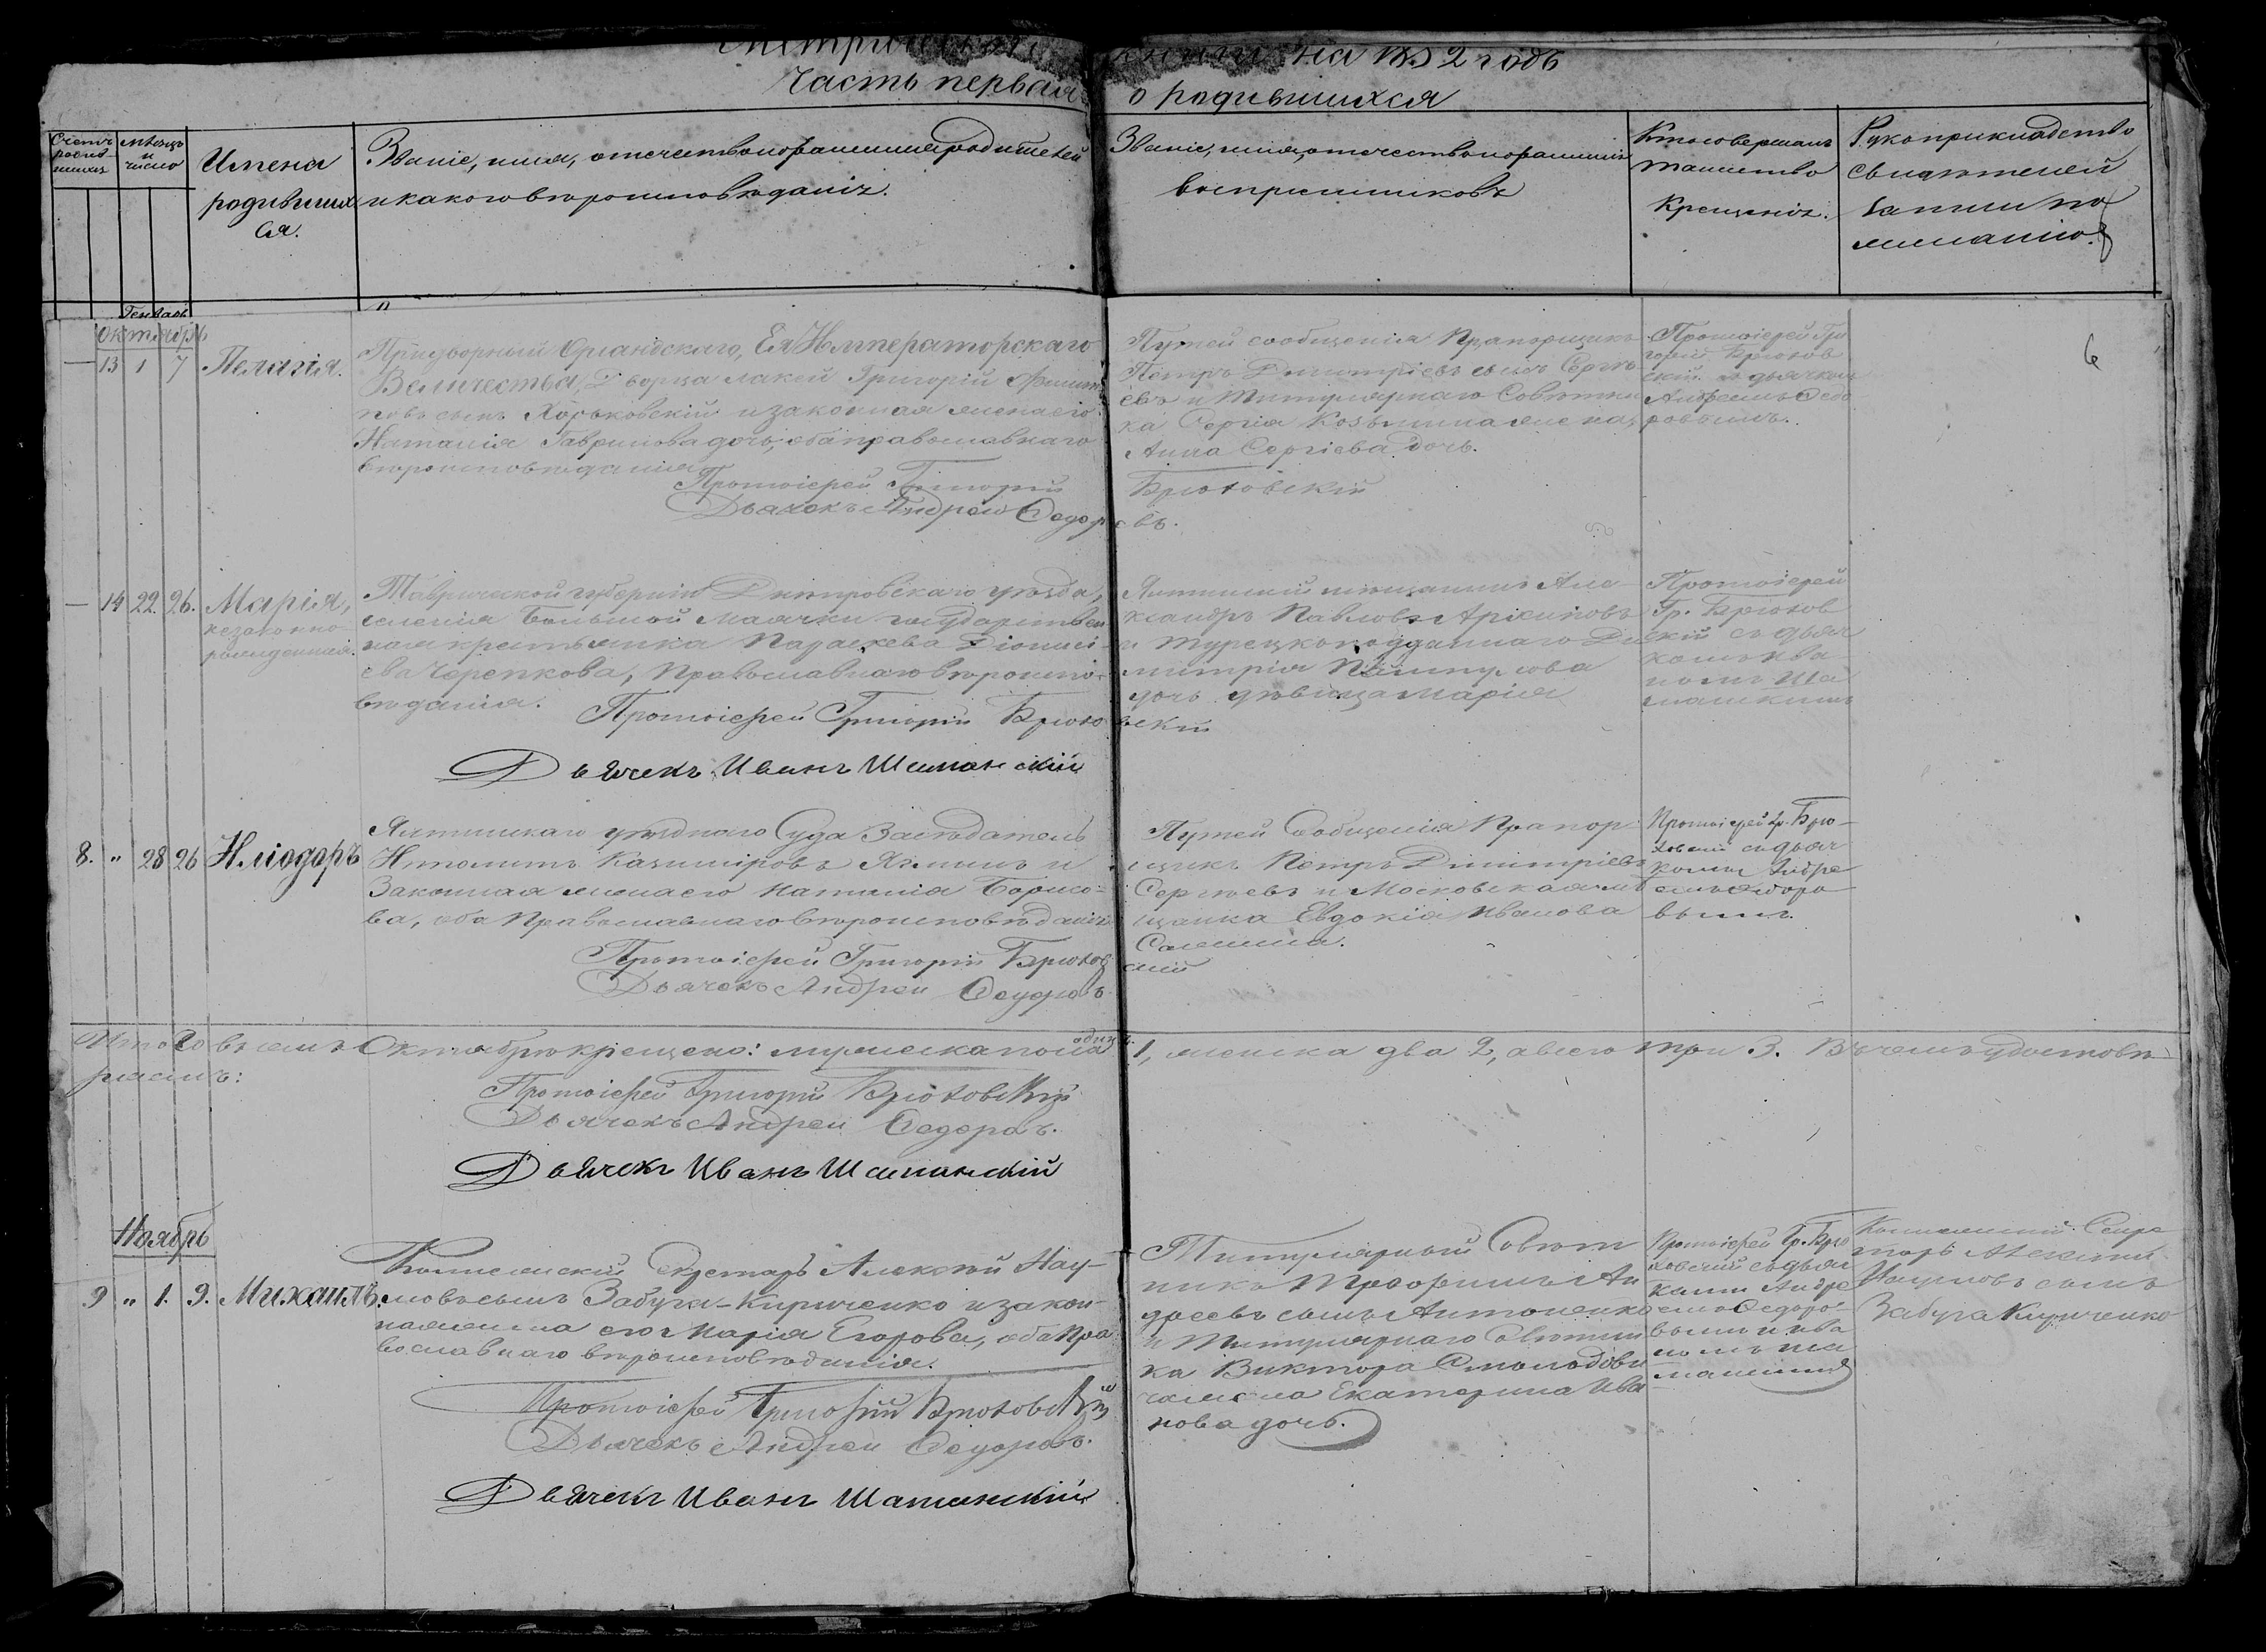 Метрической книги на 1852 годъ
Часть первая о родившихся
Счетъ родившихся
Мѣсяцъ и число
Имена родившихся.
Званіе, имя, отечество и фамилія родителей
и какого вѣроисповѣданія.
Званіе, имя, отечество и фамилія
воспріемниковъ
Кто совершалъ
таинство
Крещенія.
Рукоприкладство
свидѣтелей
записи по
желанію.
Генварь
6
Октябрь
13 1 7 Пелагія.
Придворный Оріандскаго, Ея Императорскаго
Величества, Дворца лакей Григорій Филип
повъ сынъ Хорьковскій и законная жена его
Наталія Гаврилова дочь, оба православнаго
вѣроисповѣданія
Протоіерей Григорій Брюховскій
Дьячекъ Андрей Ѳедоровъ.
Путей сообщенія Прапорщикъ
Петръ Димитріевъ сынъ Сергѣ
евъ и Титулярнаго Совѣтни
ка Сергія Козьмина жена,
Анна Сергіева дочь.
Протоіерей Гри
горій Брюхов
скій съ дьячкомъ
Андреемъ Ѳедо
ровымъ.
14 22 26. Марія,
незаконно
рожденная.
Таврической губерніи Днѣпровскаго уѣзда,
селенія Большой Маячки государствен
ная крестьянка Параскева Діонисі
ева Черепкова, Православнаго вѣроиспо-
вѣданія.
Протоіерей Григорій Брюховскій
Дьячекъ Иванъ Шиманскій
Ялтинскій мѣщанинъ Але
ксандръ Павловъ Архиповъ
и турецкоподданнаго Ди
митрія
дочь дѣвица Марія
Протоіерей
Гр. Брюхов
скій съ дьяч
комъ Ива
номъ Ши
манскимъ
8. " 28 26 Иліодоръ
Ялтинскаго уѣзднаго Суда Засѣдатель
Ипполитъ Казиміровъ и
Законная жена его Наталія Борисо-
ва, оба Православнаго вѣроисповѣданія.
Протоіерей Григорій Брюховскій
Дьячекъ Андрей Ѳедоровъ
Путей Сообщенія Прапор
щикъ Петръ Димитріевъ
Сергѣевъ и Московская мѣ
щанка Евдокія Иванова
Протоіерей Гр. Брю-
ховскій съ дьяч
комъ Андре
емъ Ѳедоро
вымъ.
Итого въ семъ Октябрѣ крещено: мужеска пола одинъ 1, женска два 2, а всего три 3. Въ чемъ удостовѣ-
ряемъ:
Протоіерей Григорій Брюховскій
Дьячекъ Андрей Ѳедоровъ.
Дьячекъ Иванъ Шиманскій
Ноябрь
9 " 1. 9. Михаилъ.
Коллежскій Секретарь Алексѣй Нау-
мовъ сынъ Забуга-Кириченко и закон-
ная жена его Марія Егорова, оба Пра
вославнаго вѣроисповѣданія.
Протоіерей Григорій Брюховскій
Дьячекъ Андрей Ѳедоровъ.
Дьячекъ Иванъ Шиманскій
Титулярный Совѣт
никъ Трофимъ Ан
дреевъ сынъ Антоненко
и Титулярнаго Совѣтни
ка Виктора Смолодови
ча жена Екатерина Ива
нова дочь.
Протоіерей Гр. Брю
ховскій съ дьяч
ками Андре
емъ Ѳедоро-
вымъ и Ива
номъ Ши
манскимъ
Коллежскій Секре
тарь Алексѣй
Наумовъ сынъ
Забуга Кириченко